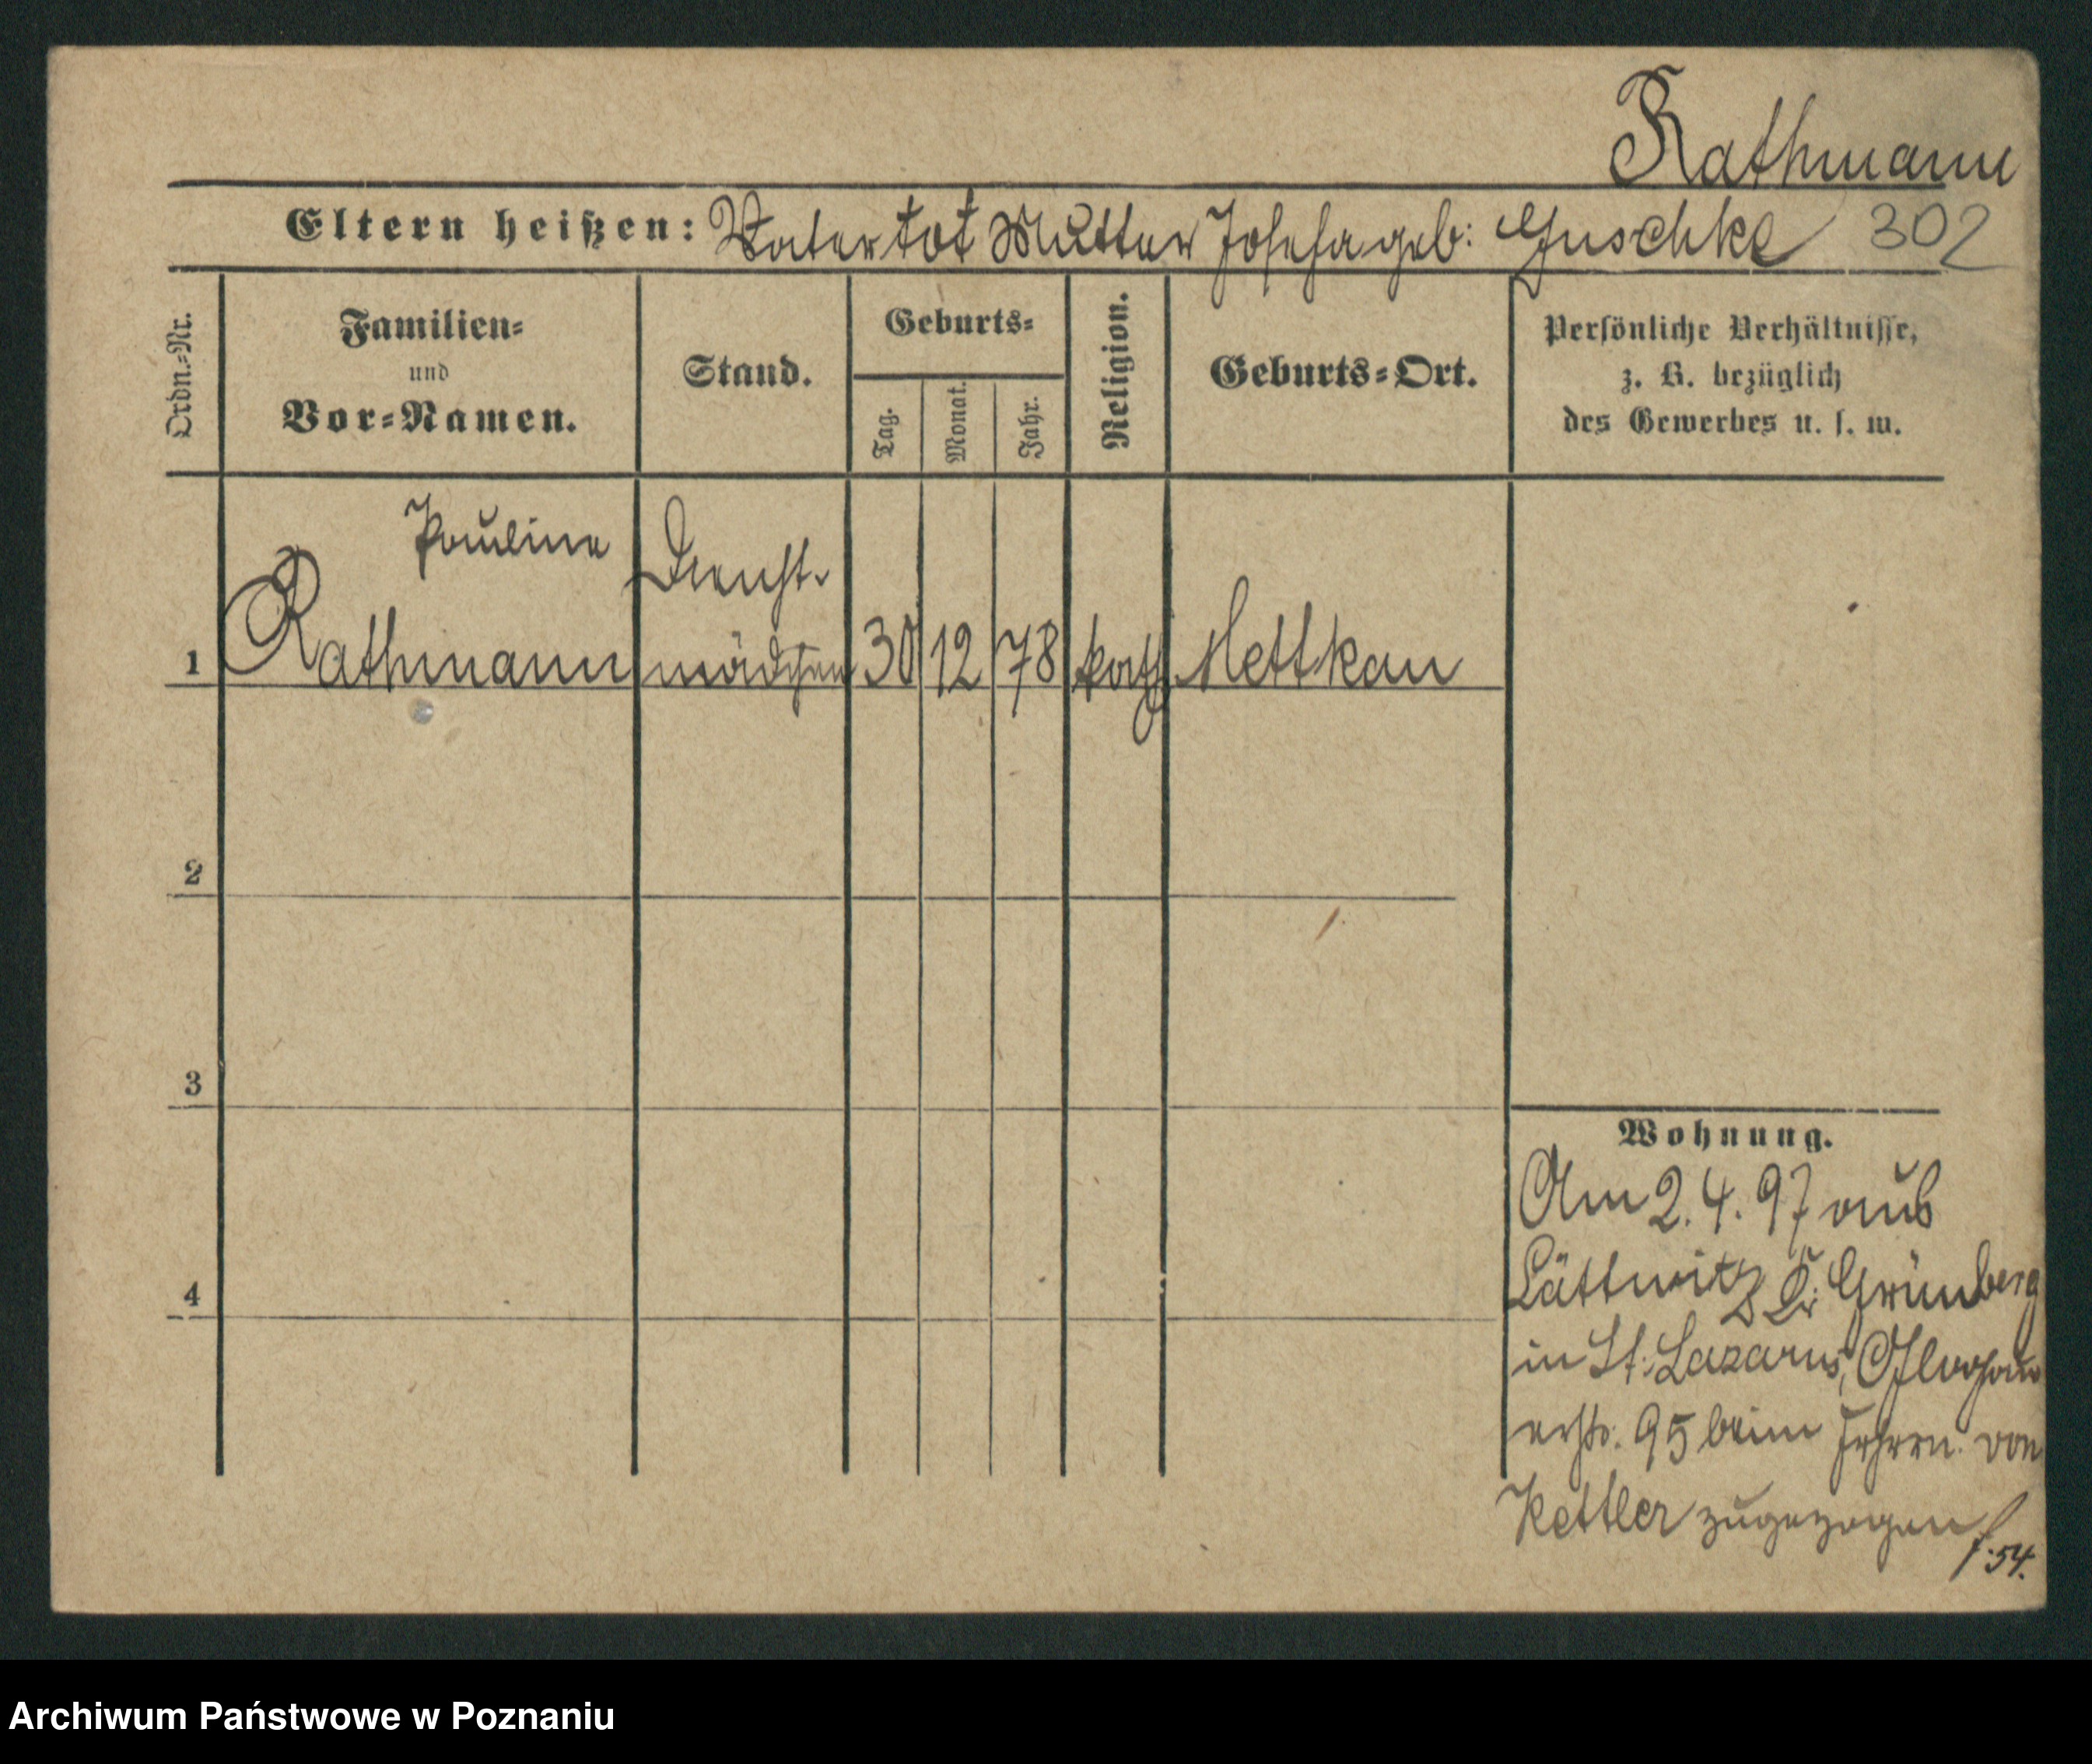 Rathmann
Eltern heißen: Vater tot Mutter Josefa geb: Guschke 302
Ordn.-Nr.
Familien- und Vor-Namen.
Stand.
Geburts-
Tag. Monat. Jahr.
Religion.
Geburts-Ort.
Persönliche Verhältnisse,
z. B. bezüglich
des Gewerbes u. s. w.
Pauline Dienst-
1 Rathmann mädchen 30 12 78 kath Mettkau
2
3
4
Wohnung.
Am 2.4.97 aus
Lättnitz Kr. Grünberg
in St. Lazarus, Glogau
erstr. 95 beim Frhrrn. von
Kettler zugezogen
f. 54.
Archiwum Państwowe w Poznaniu